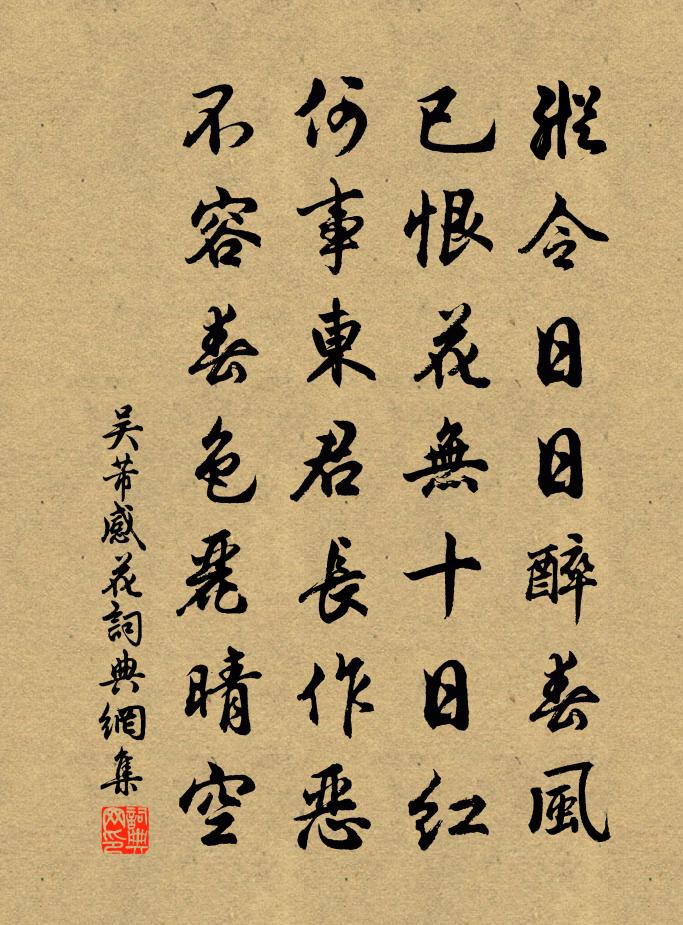 縱令日日醉春風
已恨花無十日紅
何事東君長作惡
不容春色麗晴空
吳芾感花詞典網集
詞典網印